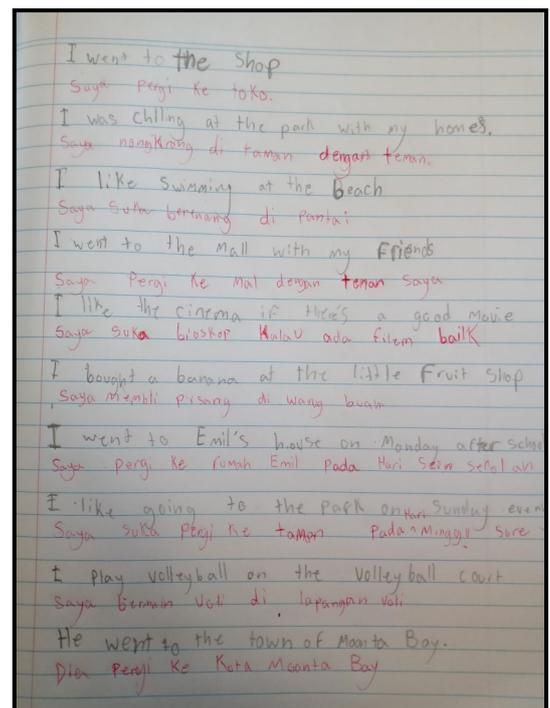 I went to the Shop
Saya Pergi Ke toko.
I was chlling at the park with my homes.
Saya nongKrong di taman dengan teman.
I like Swimming at the Beach
Saya Suka berenang di Pantai
I went to the Mall with my Friends
Saya Pergi Ke Mal dengan teman Saya
I like the cinema if there's a good Movie
Saya Suka bioskop Kalau ada filem baiK
I bought a banana at the little Fruit Shop
Saya Membli Pisang di buah
I went to Emil's house on Monday after
Saya Pergi Ke rumah Emil Pada Hari
I like going to the park on Sunday
Saya Suka Pergi Ke taman Pada Hari Minggu Sore
I Play volleyball on the Volleyball court
Saya bermain Voli di lapangan Voli
He went to the town of Moonta Bay.
Dia Pergi Ke Kota Moonta Bay